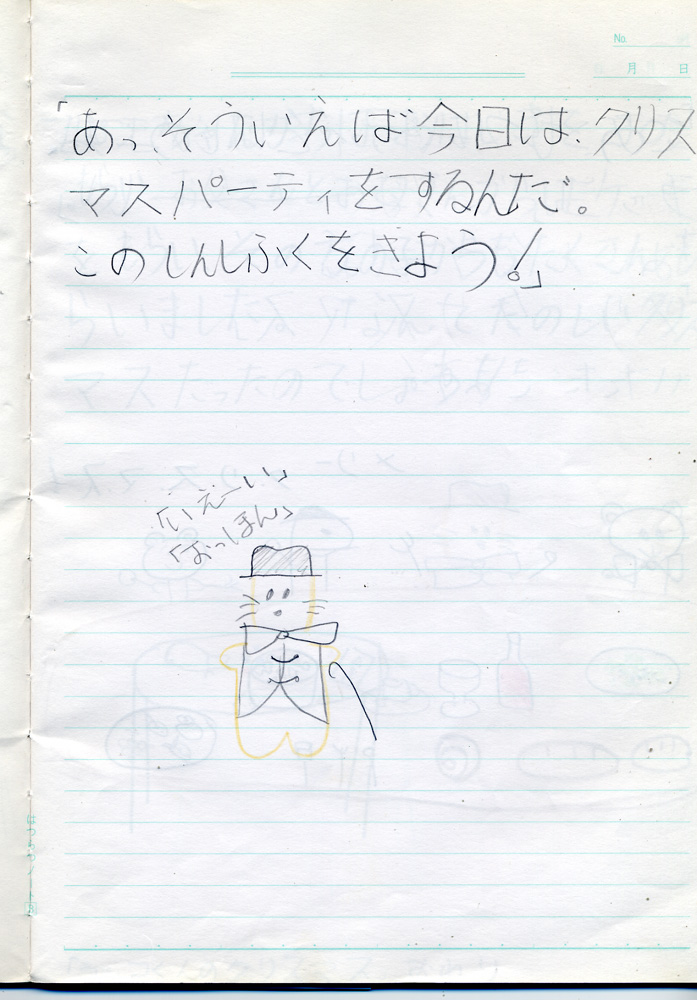 No.
月 日
「あっ、そういえば今日は、クリス
マスパーティをするんだ。
このしんしふくをきよう！」
「いえーい」
「おっほん」